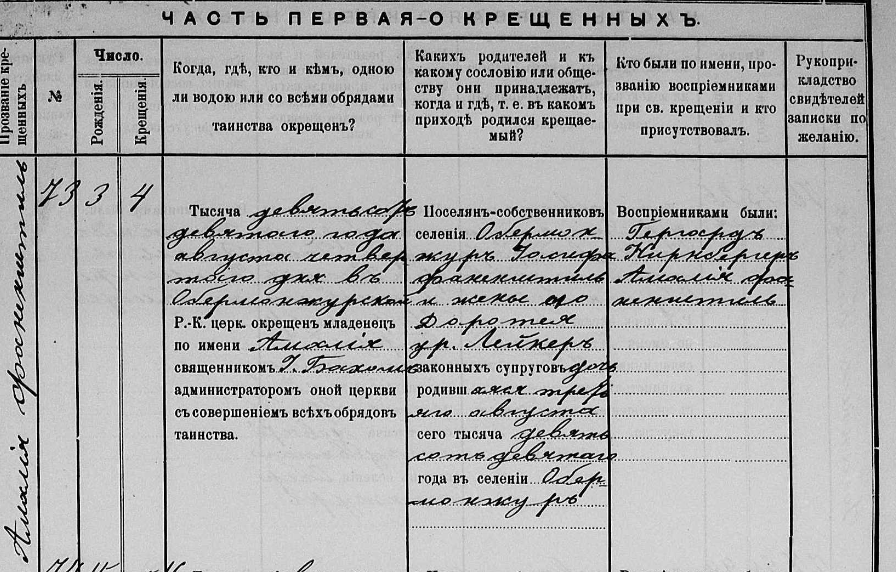 ЧАСТЬ ПЕРВАЯ-О КРЕЩЕННЫХЪ.
Прозваніе кре-
щенныхъ
№
Число.
Рожденія.
Крещенія.
Когда, гдѣ, кто и кѣмъ, одною
ли водою или со всѣми обрядами
таинства окрещенъ?
Какихъ родителей и къ
какому сословію или обще-
ству они принадлежатъ,
когда и гдѣ, т. е. въ какомъ
приходѣ родился крещае-
мый?
Кто были по имени, про-
званію воспріемниками
при св. крещеніи и кто
присутствовалъ.
Рукопри-
кладство
свидѣтелей
записки по
желанію.
Амалія Фаненштиль
73
3
4
Тысяча девятьсотъ
девятаго года
августа четвер
таго дня въ
Обермонжурской
Р.-К. церк. окрещенъ младенецъ
по имени Амалія
священникомъ І.
администраторомъ оной церкви
съ совершеніемъ всѣхъ обрядовъ
таинства.
Поселянъ-собственниковъ
селенія Обермон
журъ Іосифа
Фаненштиль
и жены его
Доротея
ур. Лейкеръ
законныхъ супруговъ дочь
родившаяся треть
яго августа
сего тысяча девять
сотъ девятаго
года въ селеніи Обер-
монжуръ
Воспріемниками были:
Гергардъ
Кирнбергеръ
Амалія Фа-
ненштиль